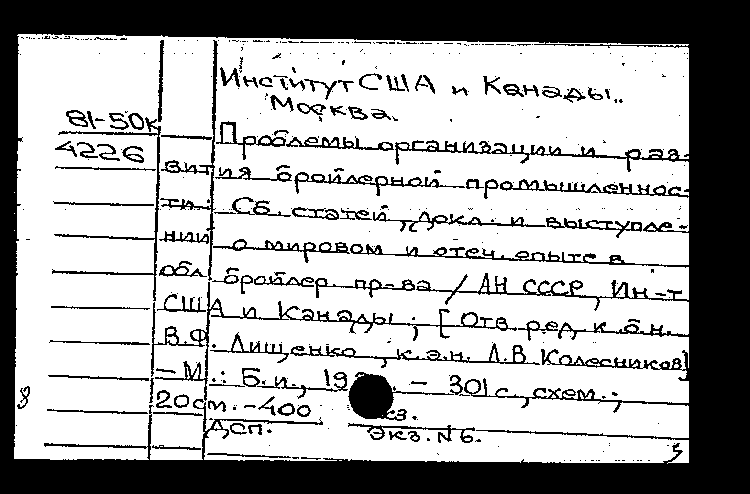 Институт США и Канады.
Москва.
81-50к
4226
Проблемы организации и раз-
вития бройлерной промышленнос-
ти: Сб. статей, докл. и выступле-
ний о мировом и отеч. опыте в
обл. бройлер. пр-ва / АН СССР, Ин-т
США и Канады; [Отв. ред. к.б.н.
В.Ф. Лищенко, к.э.н. Л.В Колесников]
– М.: Б.и., – 301 с., схем.;
20см. – 400
Дсп. Экз. N 6.
8